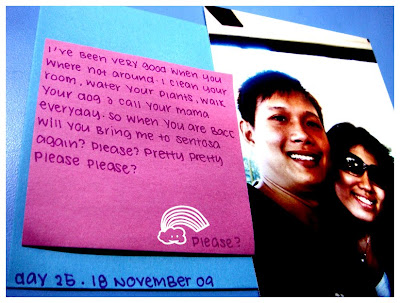 I've been very good when you
where not around. I clean your
room, water your plants, walk
your dog & call your mama
everyday. So when you are bacc
will you bring me to sentosa
again? Please? Pretty pretty
please please?
please?
day 25. 18 November 09